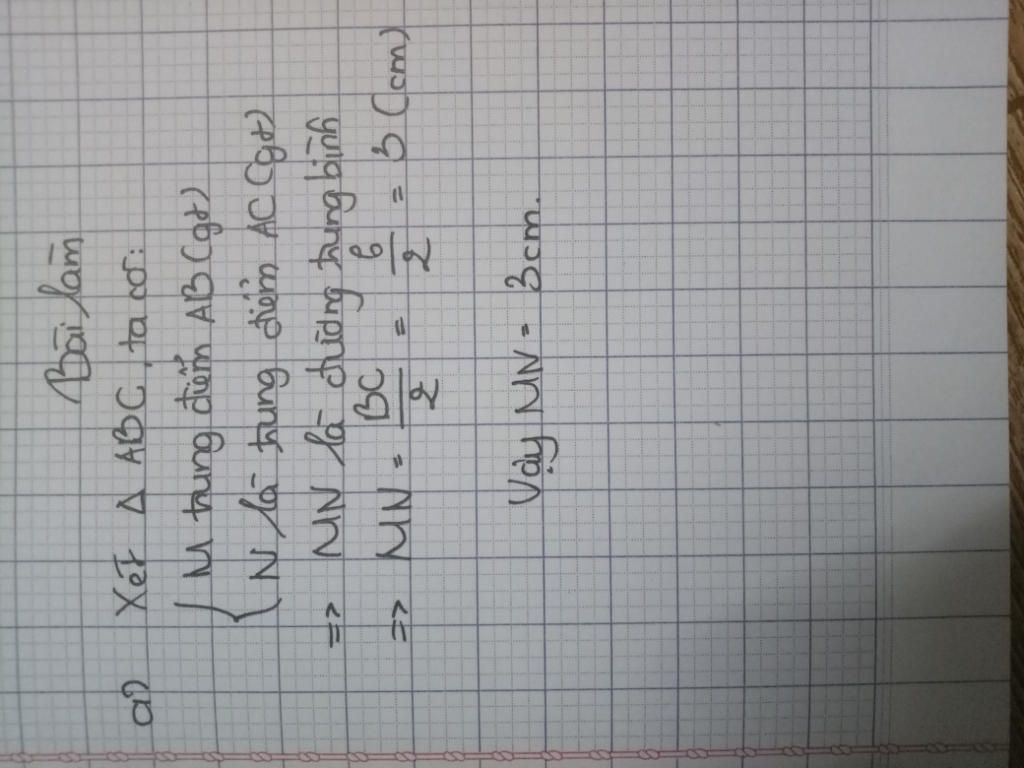 Bài làm
a) Xét Δ ABC, ta có:
{ M trung điểm AB (gt)
N là trung điểm AC (gt)
=> MN là đường trung bình
=> MN = BC/2 = 6/2 = 3 (cm)
Vậy MN = 3cm.